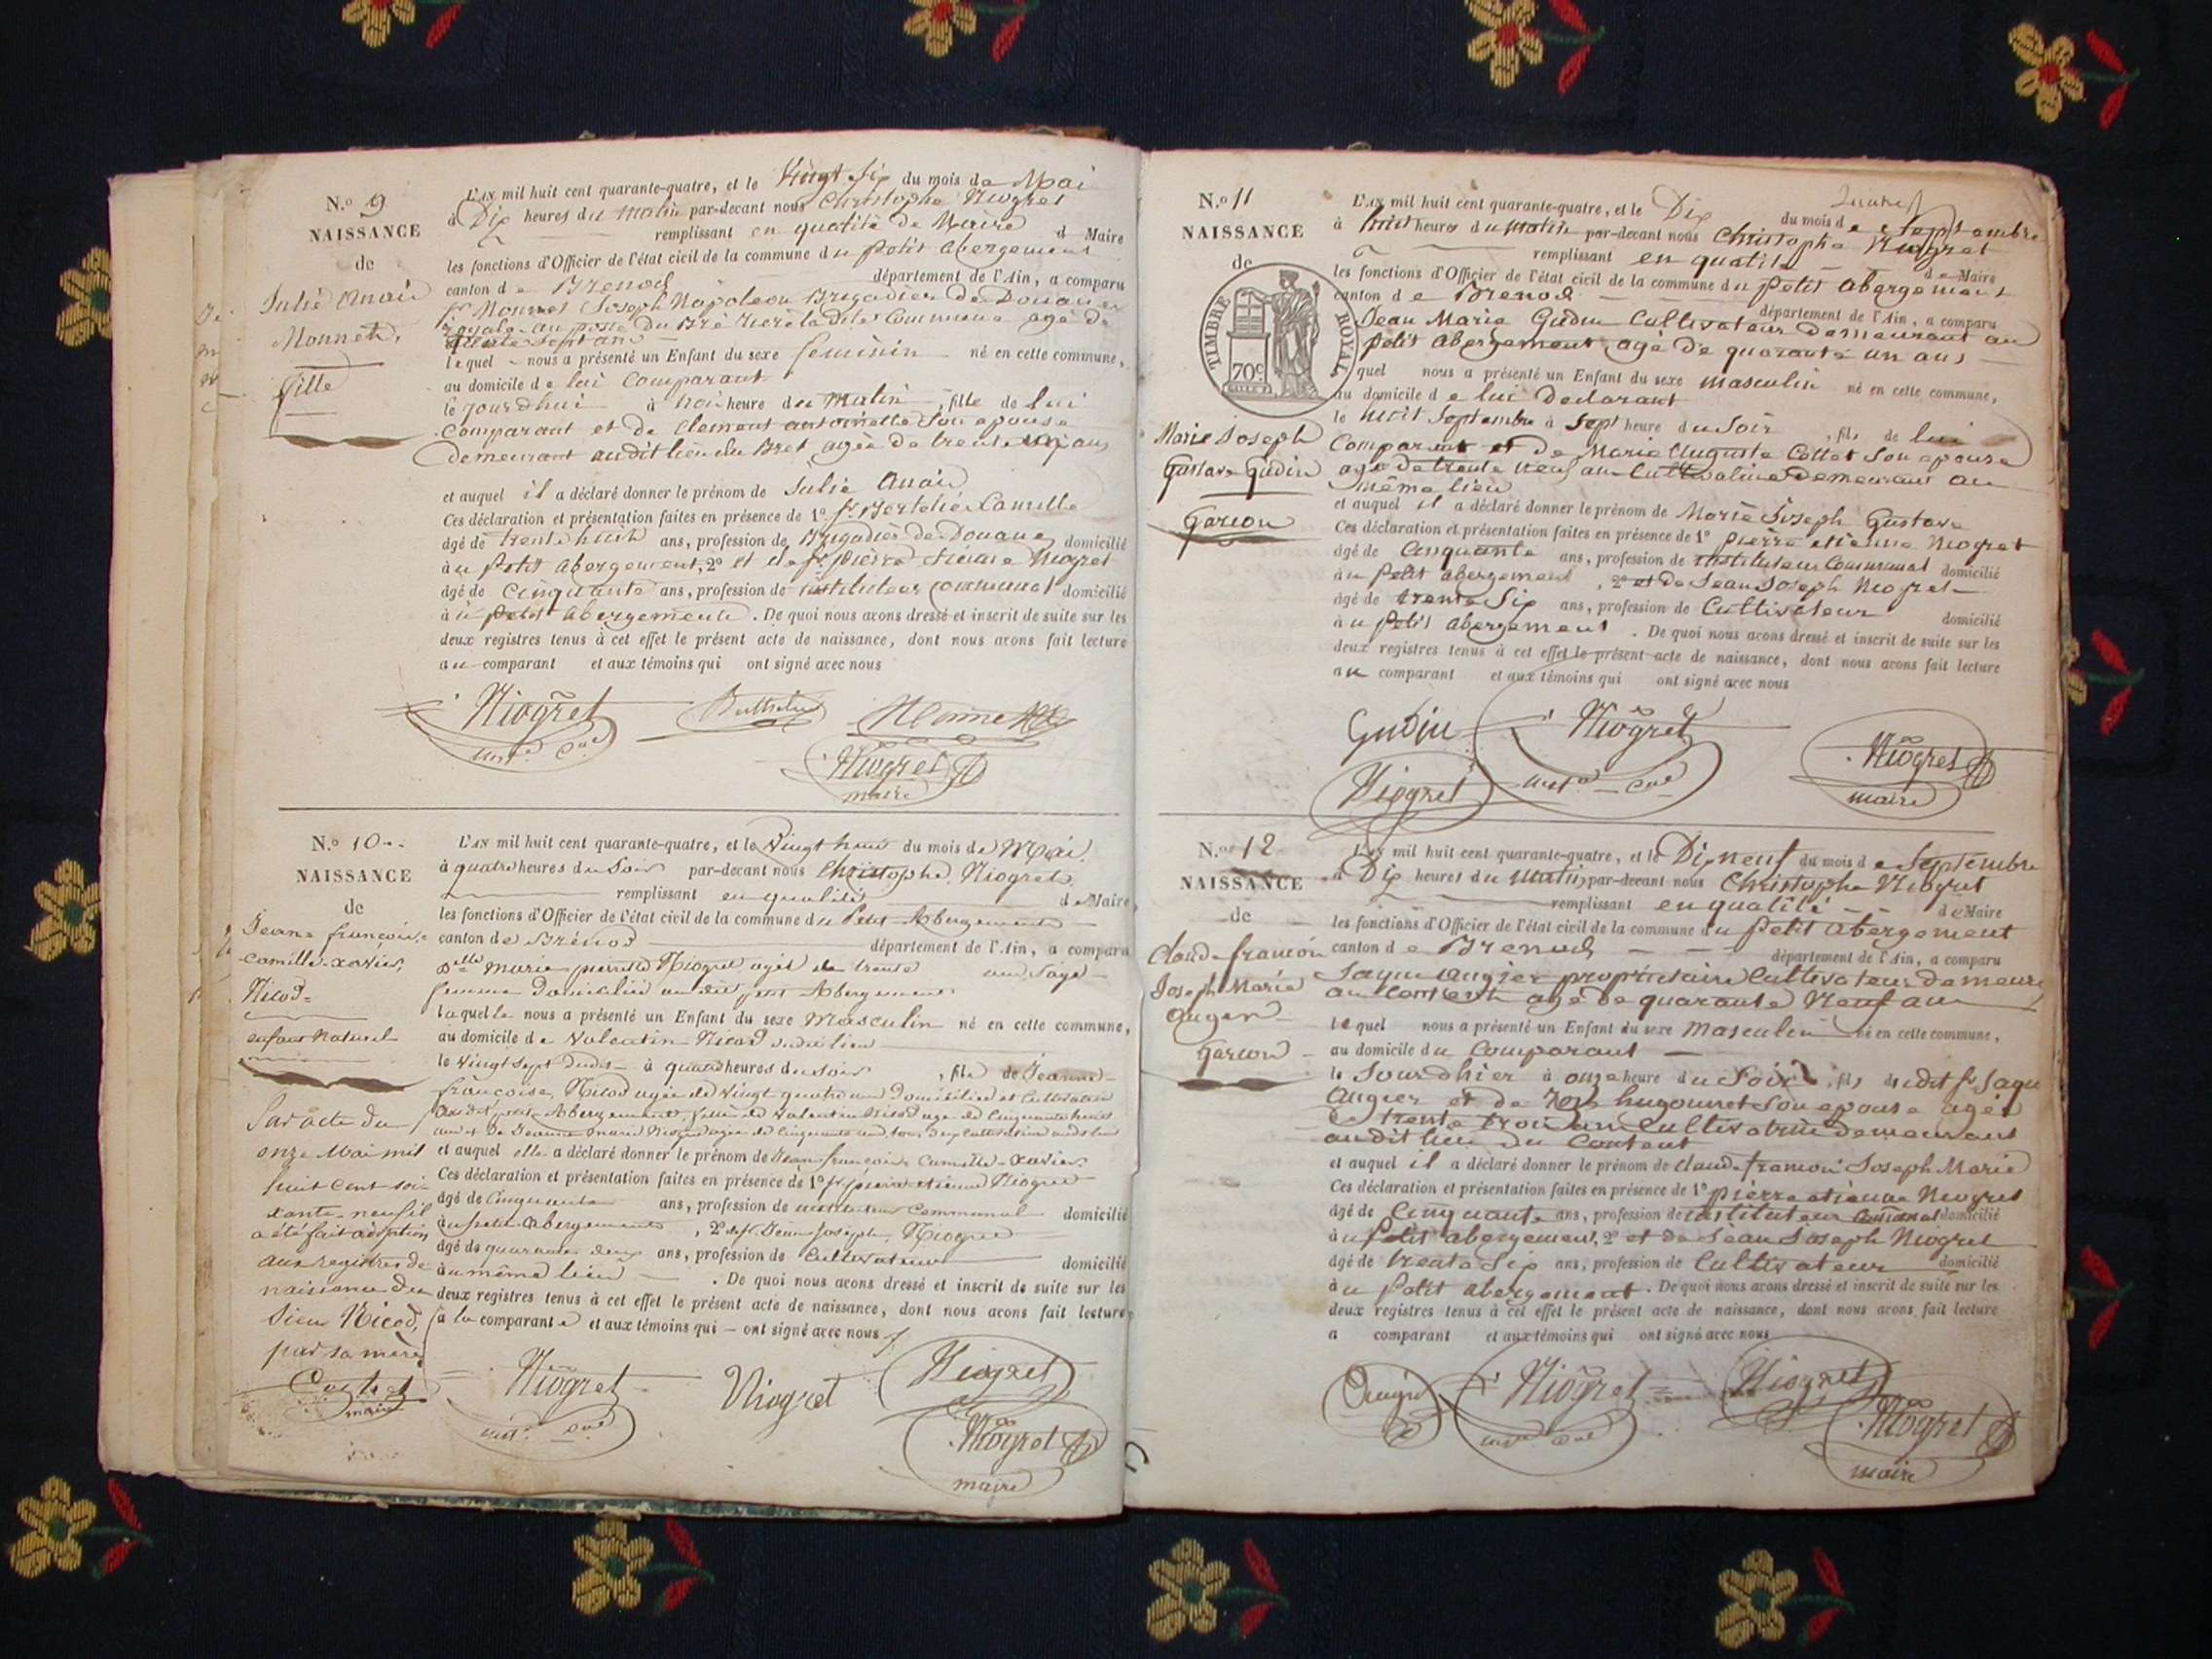 N.º 9
NAISSANCE
de
Julie Anaïs
Monnet,
fille
L'AN mil huit cent quarante-quatre, et le Vingt six du mois de Mai
à Dix heures du matin par-devant nous Christophe Niogret
remplissant en qualité de Maire d Maire
les fonctions d'Officier de l'état civil de la commune du petit abergement
canton de Brenod département de l'Ain, a comparu
sr Monnet Joseph Napoleon Brigadier de Douanes
royale au poste du Bré rière la dite Commune agé de
sept ans
lequel nous a présenté un Enfant du sexe feminin né en cette commune,
au domicile de lui Comparant
le jourdhui à trois heure du matin, fille de lui
Comparant et de Clement antoinette Son epouse
demeurant audit lieu du Bret agée de trente ans
et auquel il a déclaré donner le prénom de Julie Anaïs
Ces déclaration et présentation faites en présence de 1º sr Bertelié Camille
âgé de trente huit ans, profession de Brigadier de Douane domicilié
à u petit abergement, 2º et de sr pierre etienne Niogret
âgé de Cinquante ans, profession de instituteur communal domicilié
à u petit abergement. De quoi nous avons dressé et inscrit de suite sur les
deux registres tenus à cet effet le présent acte de naissance, dont nous avons fait lecture
au comparant et aux témoins qui ont signé avec nous
Niogret
Monnet
Niogret
maire
N.º 10
NAISSANCE
de
Jean françois
Camille-xavier,
Nicod
enfant Naturel
Par acte du
onze Mai mil
huit cent soi-
xante-neuf il
a été fait adoption
aux registres de
naissance du
Sieur Nicod,
par sa mère
maire
L'AN mil huit cent quarante-quatre, et le Vingt huit du mois de Mai
à quatre heures du Soir par-devant nous Christophe Niogret
remplissant en qualité de Maire
les fonctions d'Officier de l'état civil de la commune du Petit Abergement
canton de Brénod département de l'Ain, a comparu
Delle Marie pierrette Niogret agée de trente ans Sage
femme Domiciliée au dit petit Abergement
laquelle nous a présenté un Enfant du sexe Masculin né en cette commune,
au domicile de Valentin Nicod dudit lieu
le Vingt sept dudit à quatre heures du soir, fils de Jeanne
françoise Nicod agée de Vingt quatre ans Domiciliée et Cultivatrice
audit petit Abergement, fille de Valentin Nicod age de Cinquante huit
ans et de Jeanne Marie Niogret agée de Cinquante ans, tous deux cultivateurs audit lieu
et auquel elle a déclaré donner le prénom de Jean françois Camille-xavier
Ces déclaration et présentation faites en présence de 1º sr pierre etienne Niogret
âgé de Cinquante ans, profession de instituteur Communal domicilié
à u petit Abergement, 2º de sr Jean Joseph Niogret
âgé de quarante deux ans, profession de Cultivateur domicilié
à u même lieu. De quoi nous avons dressé et inscrit de suite sur les
deux registres tenus à cet effet le présent acte de naissance, dont nous avons fait lecture
à la comparante et aux témoins qui ont signé avec nous
Niogret
Niogret
Niogret
Niogret
maire
N.º 11
NAISSANCE
de
TIMBRE ROYAL
70c
Marie Joseph
Gustave Gudin
Garcon
L'AN mil huit cent quarante-quatre, et le Dix du mois de Septembre
à huit heures du matin par-devant nous Christophe Niogret
remplissant en qualité de Maire
les fonctions d'Officier de l'état civil de la commune du petit abergement
canton de Brenod département de l'Ain, a comparu
Jean Marie Gudin Cultivateur demeurant au
petit abergement, agé de quarante un ans
quel nous a présenté un Enfant du sexe masculin né en cette commune,
au domicile de lui Declarant
le huit Septembre à sept heure du Soir, fils de lui
Comparant et de Marie Auguste Cottet Son epouse
agé de trente neuf ans Cultivatrice Demeurant au
même lieu
et auquel il a déclaré donner le prénom de Marie Joseph Gustave
Ces déclaration et présentation faites en présence de 1º pierre etienne Niogret
âgé de Cinquante ans, profession de instituteur Communal domicilié
à u petit abergement, 2º et de Jean Joseph Niogret
âgé de trente Six ans, profession de Cultivateur domicilié
à u petit abergement. De quoi nous avons dressé et inscrit de suite sur les
deux registres tenus à cet effet le présent acte de naissance, dont nous avons fait lecture
au comparant et aux témoins qui ont signé avec nous
Gudin
Niogret
Niogret
Niogret
maire
N.º 12
NAISSANCE
de
Claude francois
Joseph Marie
Augier
Garcon
L'AN mil huit cent quarante-quatre, et le Dix neuf du mois de Septembre
à Dix heures du matin par-devant nous Christophe Niogret
remplissant en qualité de Maire
les fonctions d'Officier de l'état civil de la commune du petit abergement
canton de Brenod département de l'Ain, a comparu
Jaque Augier propriétaire Cultivateur demeurt
au Content agé de quarante Neuf ans
lequel nous a présenté un Enfant du sexe masculin né en cette commune,
au domicile du Comparant
le Jourdhier à onze heure du Soir, fils dudit sr Jaque
Augier et de hugonnet Son epouse agée
de trente trois ans Cultivatrice demeurant
audit lieu du Content
et auquel il a déclaré donner le prénom de Claude francois Joseph Marie
Ces déclaration et présentation faites en présence de 1º pierre etienne Niogret
âgé de Cinquante ans, profession de instituteur Communal domicilié
à u petit abergement, 2º et de Jean Joseph Niogret
âgé de trente Six ans, profession de Cultivateur domicilié
à u petit abergement. De quoi nous avons dressé et inscrit de suite sur les
deux registres tenus à cet effet le présent acte de naissance, dont nous avons fait lecture
a comparant et aux témoins qui ont signé avec nous
Niogret
Niogret
Niogret
maire